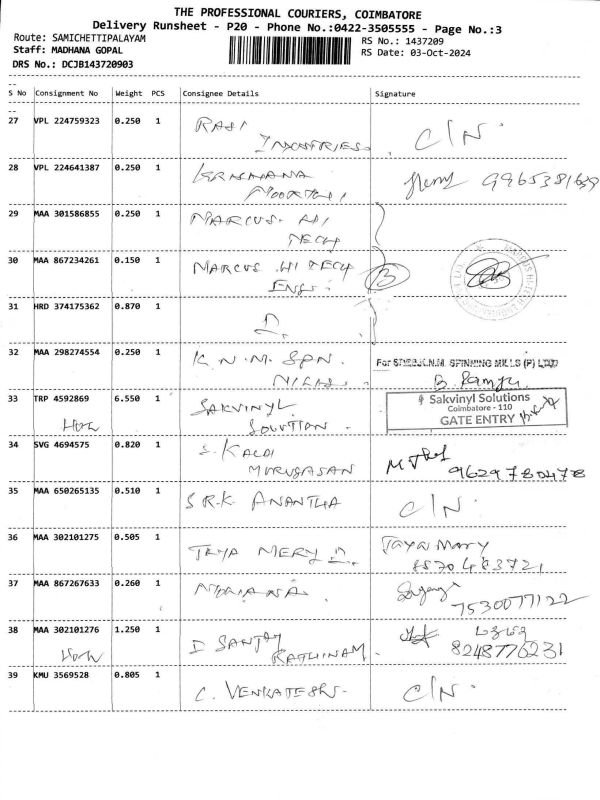 THE PROFESSIONAL COURIERS, COIMBATORE
Delivery Runsheet - P20 - Phone No.:0422-3505555 - Page No.:3
Route: SAMICHETTIPALAYAM
RS No.: 1437209
Staff: MADHANA GOPAL
RS Date: 03-Oct-2024
DRS No.: DCJB143720903
S No Consignment No Weight PCS Consignee Details Signature
27 VPL 224759323 0.250 1 RASI C/N
INDUSTRIES
28 VPL 224641387 0.250 1 KRISHNANA
MOORTHI
29 MAA 301586855 0.250 1 MARCUS. HI
TECH
30 MAA 867234261 0.150 1 MARCUS HI TECH (3)
ENGS.
31 HRD 374175362 0.870 1
32 MAA 298274554 0.250 1 K.N.M. SPN. For SPINNING MILLS (P) LTD
MILLS. B. Ramya
33 TRP 4592869 6.550 1 SAKVINYL Sakvinyl Solutions
SOLUTION. Coimbatore - 110
GATE ENTRY
34 SVG 4694575 0.820 1 S. KALAI
MURUGASAN 9629780478
35 MAA 650265135 0.510 1 S R.K. ANANTHA C/N.
36 MAA 302101275 0.505 1 JAYA MERY D. Jaya Mary
37 MAA 867267633 0.260 1 7530077122
38 MAA 302101276 1.250 1 D SANJAY
RATHINAM. 8248776231
39 KMU 3569528 0.805 1 C. VENKATESH. C/N.